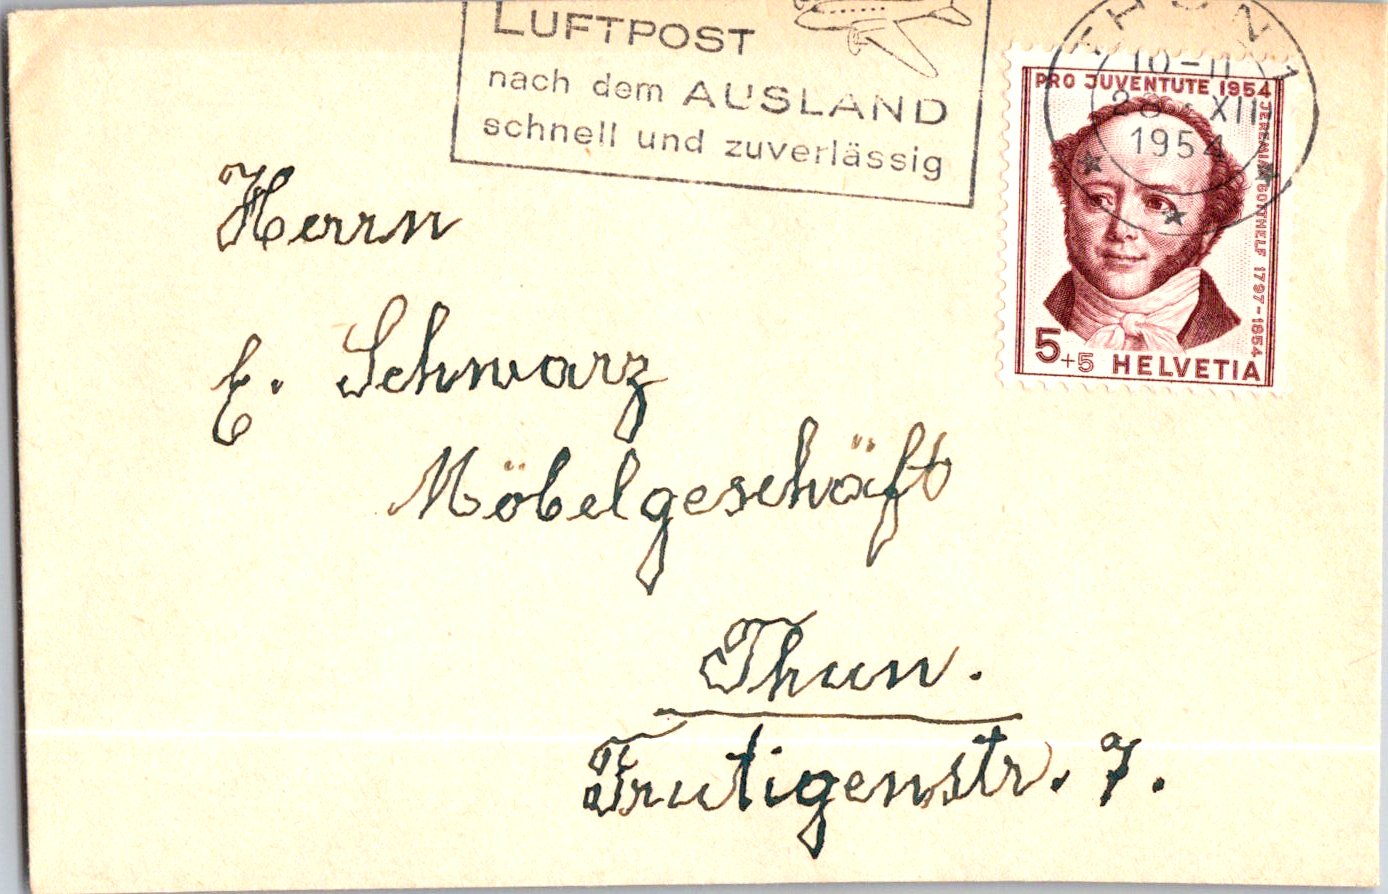 LUFTPOST
nach dem AUSLAND
schnell und zuverlässig
THUN 1
10-11
XII
1954
PRO JUVENTUTE 1954
JEREMIAS GOTTHELF 1797-1854
5+5 HELVETIA
Herrn
E. Schwarz
Möbelgeschäft
Thun.
Frutigenstr. 7.